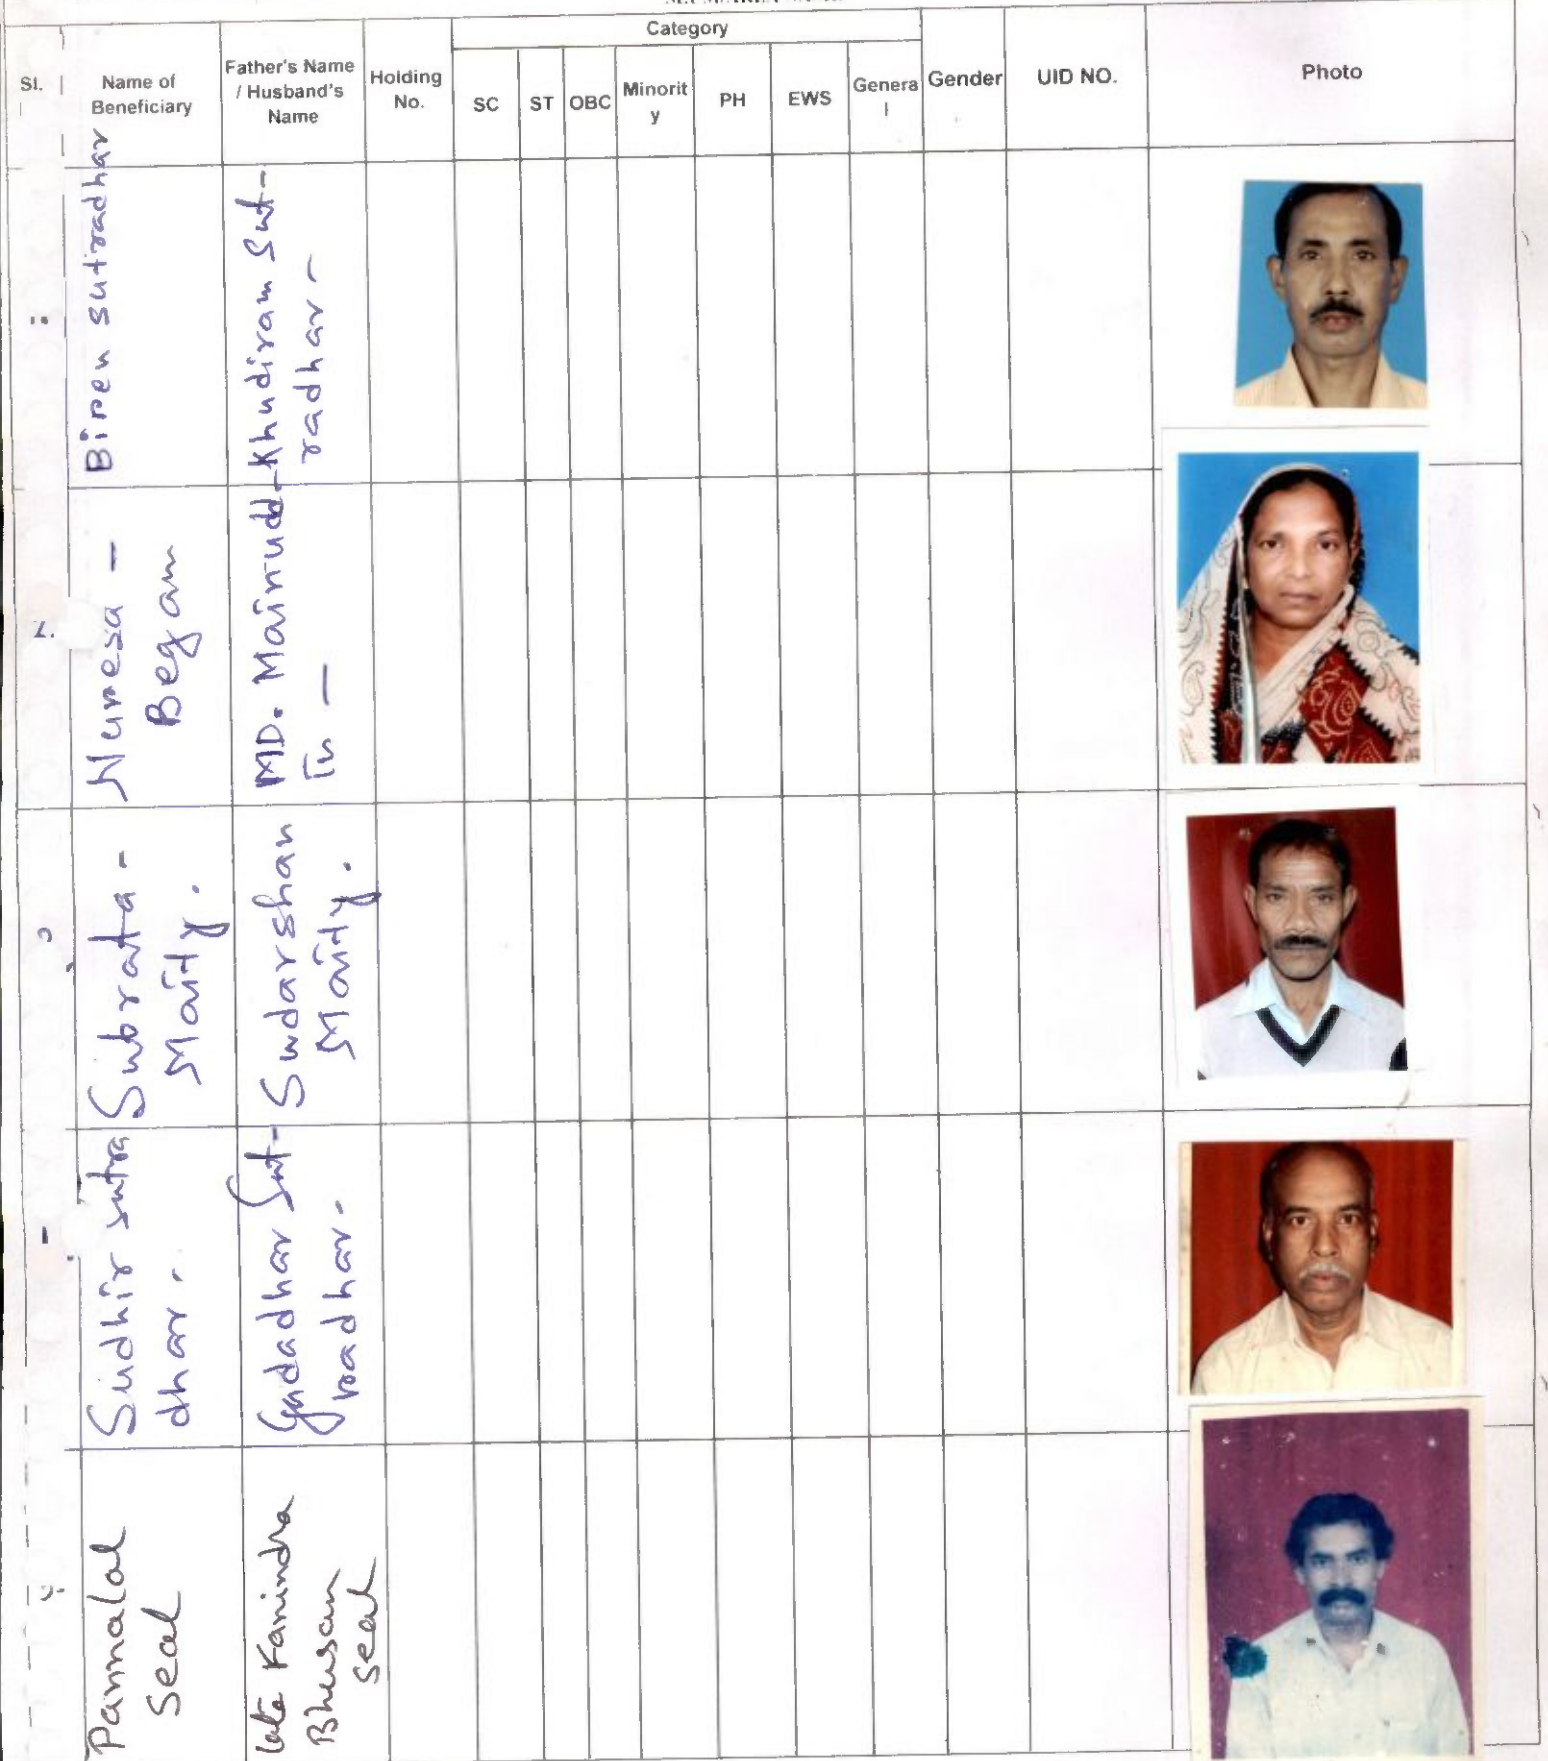 Category
Sl.
Name of
Beneficiary
Father's Name
/ Husband's
Name
Holding
No.
SC
ST
OBC
Minorit
y
PH
EWS
Genera
l
Gender
UID NO.
Photo
Biren sutradhar
Khudiram Sut-
radhar -
Nuresa -
Began
MD. Mainudd-
in -
Subrata -
Maity.
Sudarshan
Maity.
Sudhir sutra
dhar.
Gadadhar Sut-
radhar.
Pannalal
Seal
Late Fanindra
Bhusan
Seal